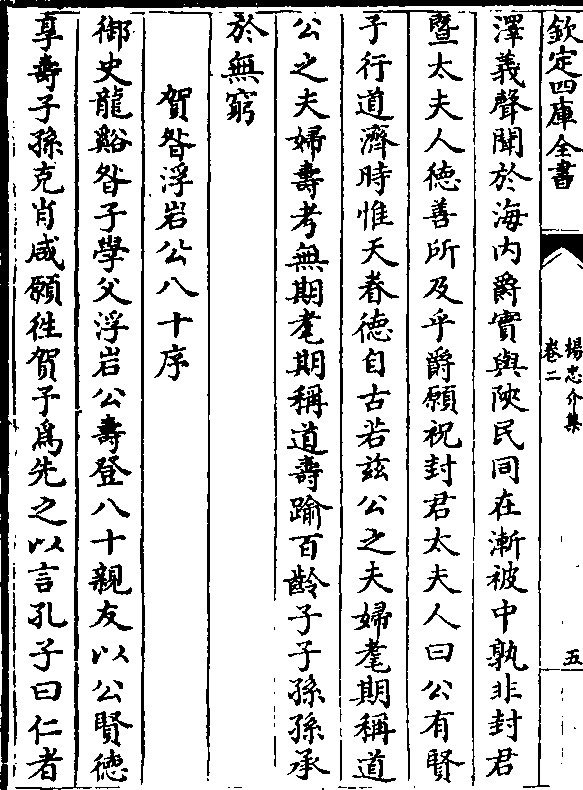 欽定四庫全書
楊忠介集
卷二
五
澤義聲聞於海內爵實與陜民同在漸被中孰非封君
暨太夫人德善所及乎爵願祝封君太夫人曰公有賢
子行道濟時惟天眷德自古若兹公之夫婦耄期稱道
公之夫婦壽考無期耄期稱道壽踰百齡子子孫孫承
於無窮
賀昝浮岩公八十序
御史龍谿昝子學父浮岩公壽登八十親友以公賢德
享壽子孫克肖咸願徃賀予為先之以言孔子曰仁者